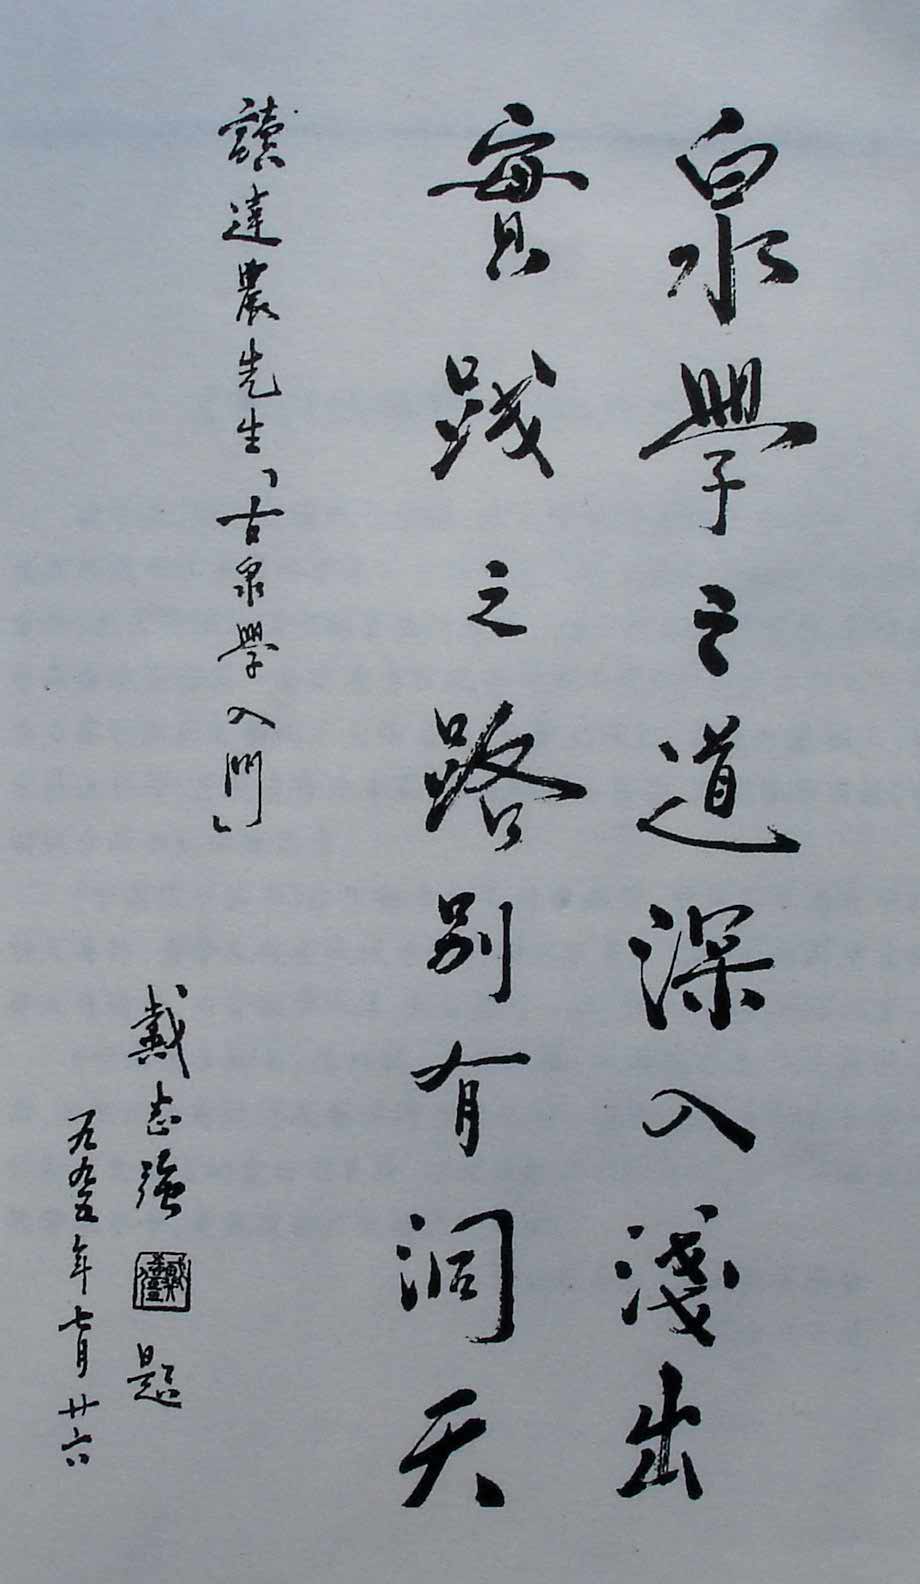 泉學之道深入淺出
實踐之路别有洞天
讀達農先生「古泉學入門」
戴志强 題
一九九五年七月廿六